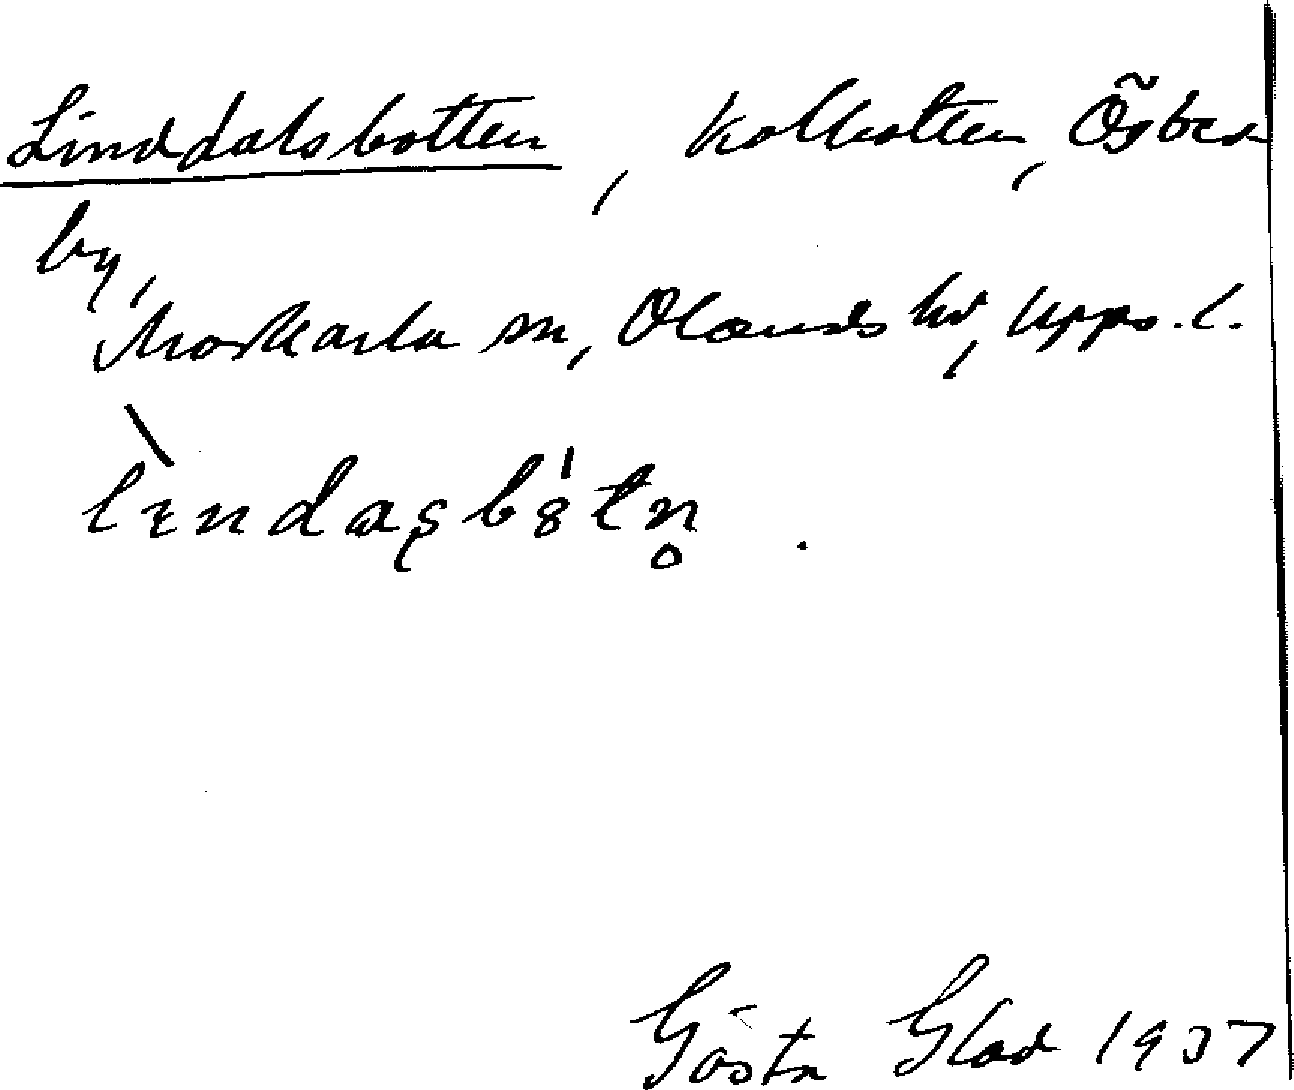 Linddalsbotten, kolbotten, Ösben
by,
Morkarla sn, Olands hd, Upps. l.
lɪndaʂbɵtn̥.
Gösta Glad 1937